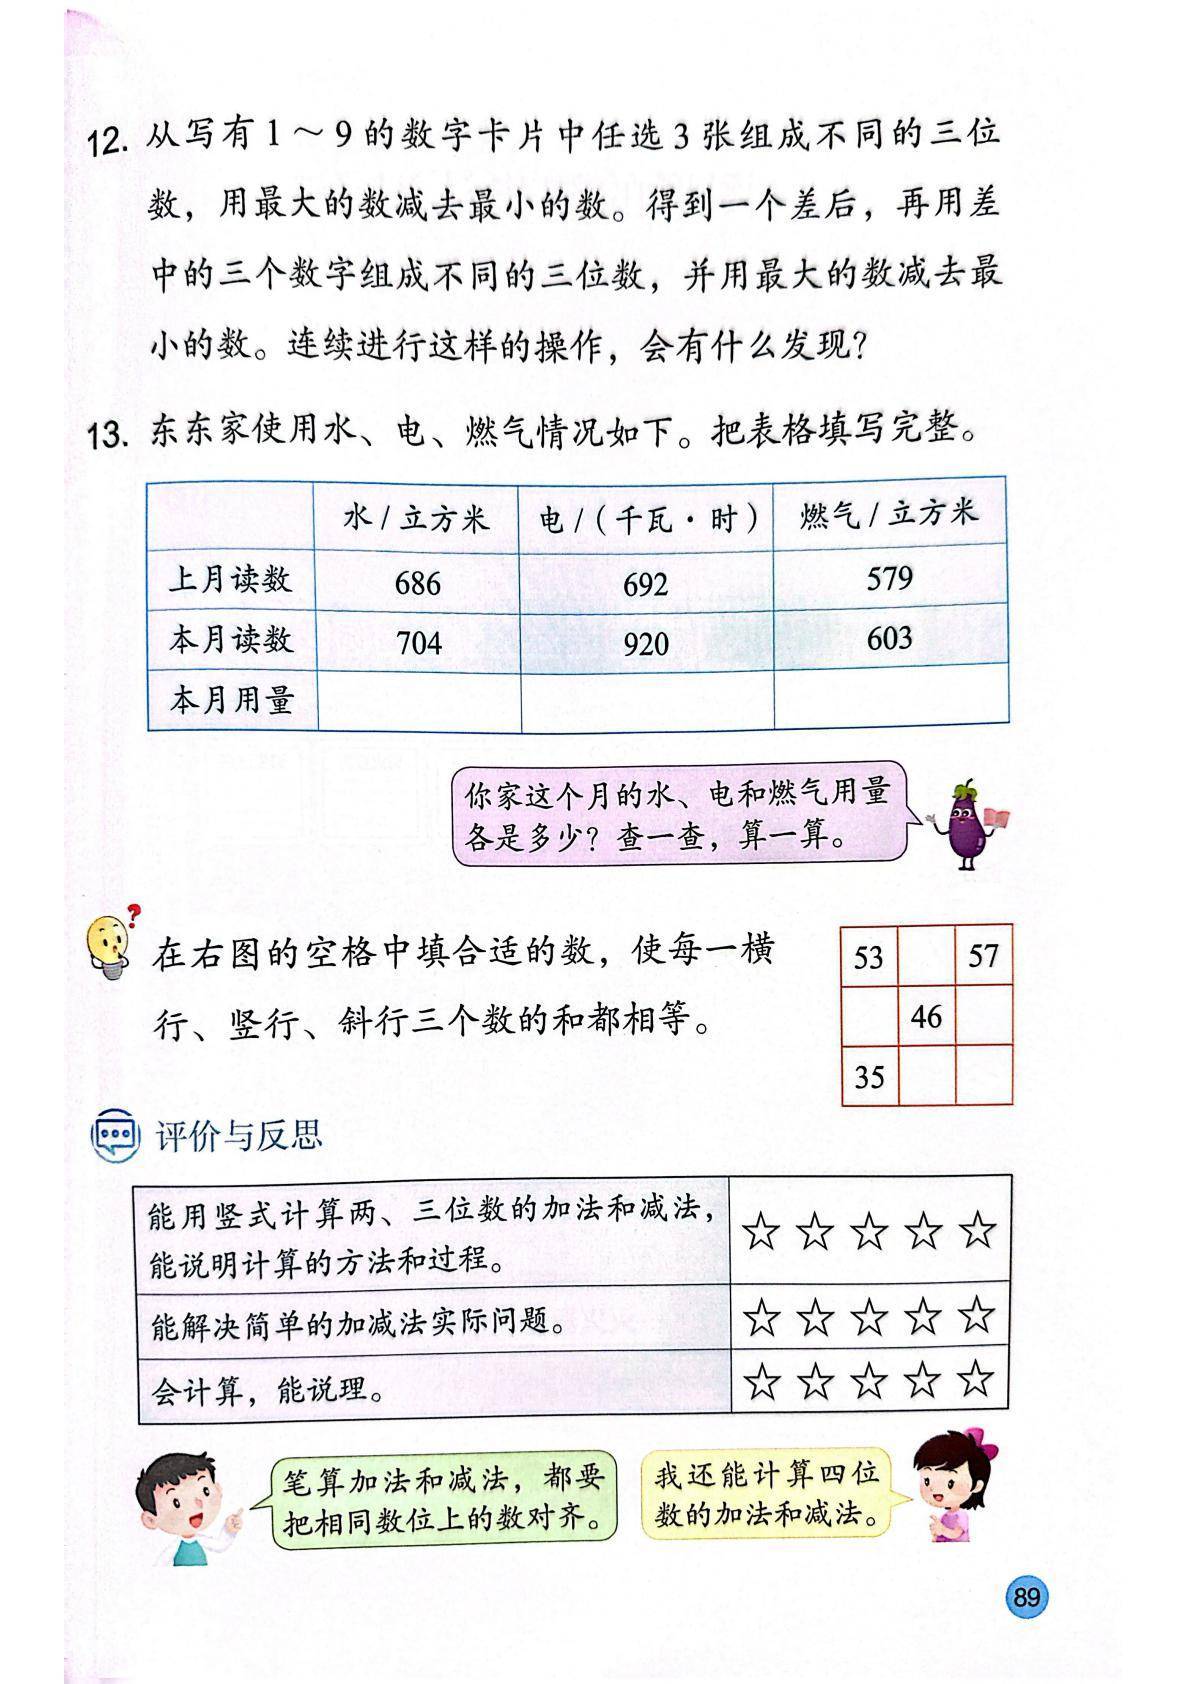 12. 从写有1～9的数字卡片中任选3张组成不同的三位
数，用最大的数减去最小的数。得到一个差后，再用差
中的三个数字组成不同的三位数，并用最大的数减去最
小的数。连续进行这样的操作，会有什么发现？
13. 东东家使用水、电、燃气情况如下。把表格填写完整。
水/立方米 电/(千瓦·时) 燃气/立方米
上月读数 686 692 579
本月读数 704 920 603
本月用量
你家这个月的水、电和燃气用量
各是多少？查一查，算一算。
?
在右图的空格中填合适的数，使每一横
行、竖行、斜行三个数的和都相等。
53 57
46
35
评价与反思
能用竖式计算两、三位数的加法和减法，
能说明计算的方法和过程。
☆ ☆ ☆ ☆ ☆
能解决简单的加减法实际问题。 ☆ ☆ ☆ ☆ ☆
会计算，能说理。 ☆ ☆ ☆ ☆ ☆
笔算加法和减法，都要
把相同数位上的数对齐。
我还能计算四位
数的加法和减法。
89